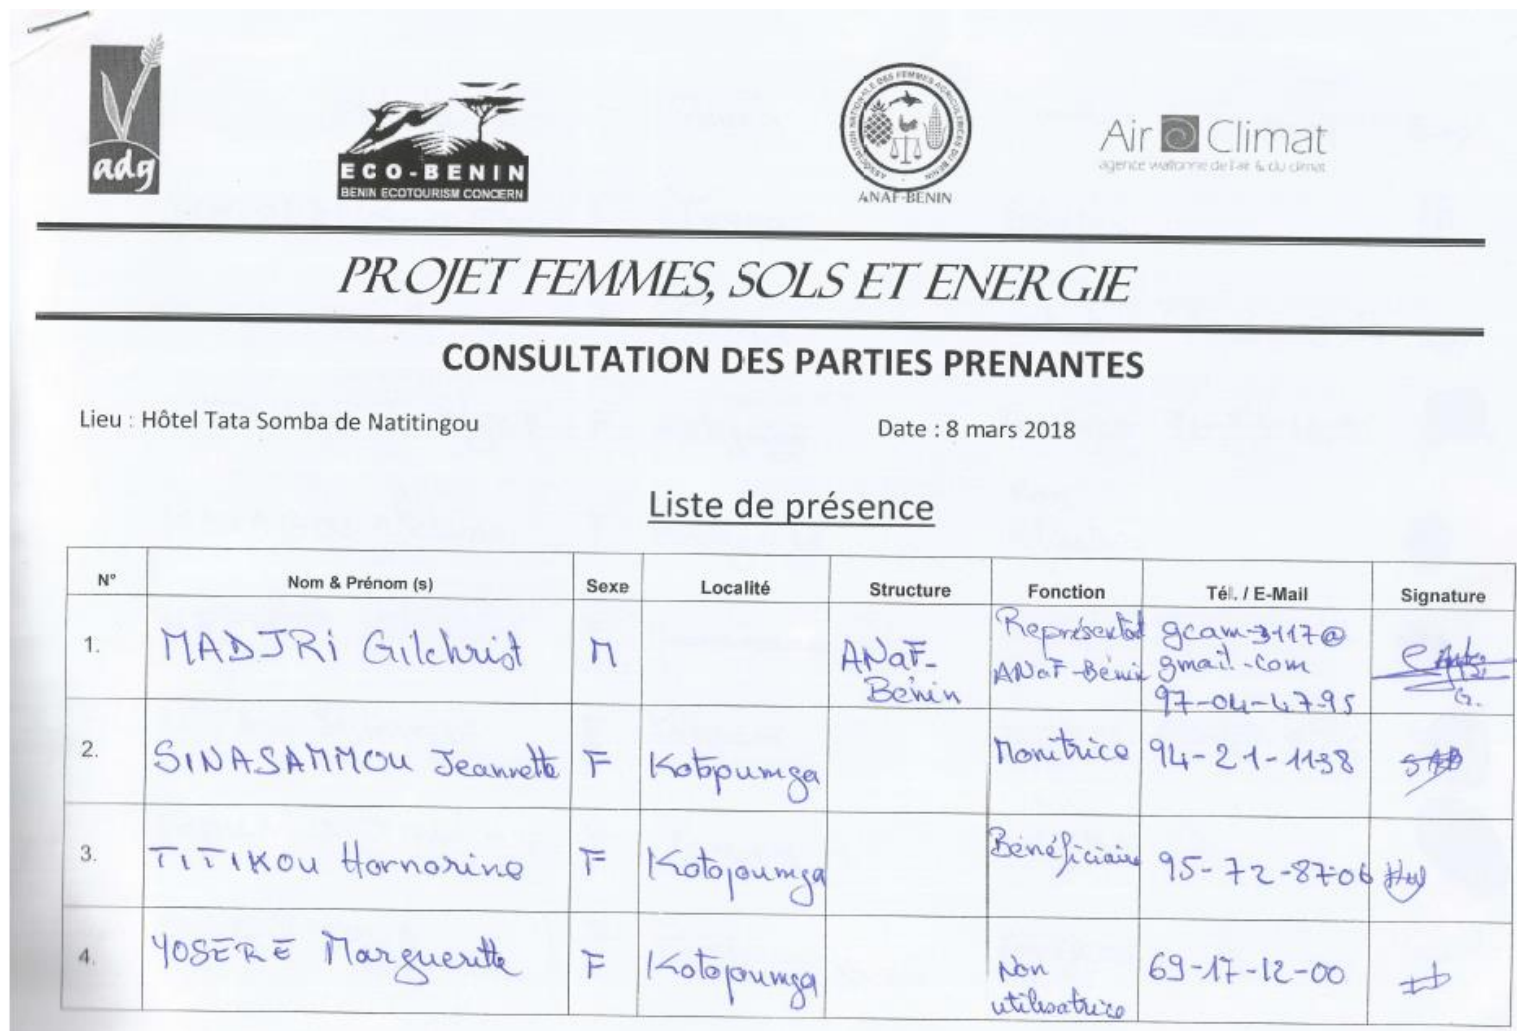 adg
ECO-BENIN
BENIN ECOTOURISM CONCERN
ASSOCIATION NATIONALE DES FEMMES AGRICULTRICES DU BENIN
ANAF-BENIN
Air Climat
agence wallonne de l'air & du climat
PROJET FEMMES, SOLS ET ENERGIE
CONSULTATION DES PARTIES PRENANTES
Lieu : Hôtel Tata Somba de Natitingou Date : 8 mars 2018
Liste de présence
N° Nom & Prénom (s) Sexe Localité Structure Fonction Tél. / E-Mail Signature
1. MADJRi Gilchrist M ANaF-Bénin Représentat ANaF-Bénin gcam3117@gmail.com 97-04-47-95
2. SINASAMMOU Jeannette F Kotopumga Monitrice 94-21-1138
3. TITIKOU Hornorine F Kotopumga Bénéficiaire 95-72-8706
4. YOSERE Marguerite F Kotopoumga Non utilisatrice 69-17-12-00